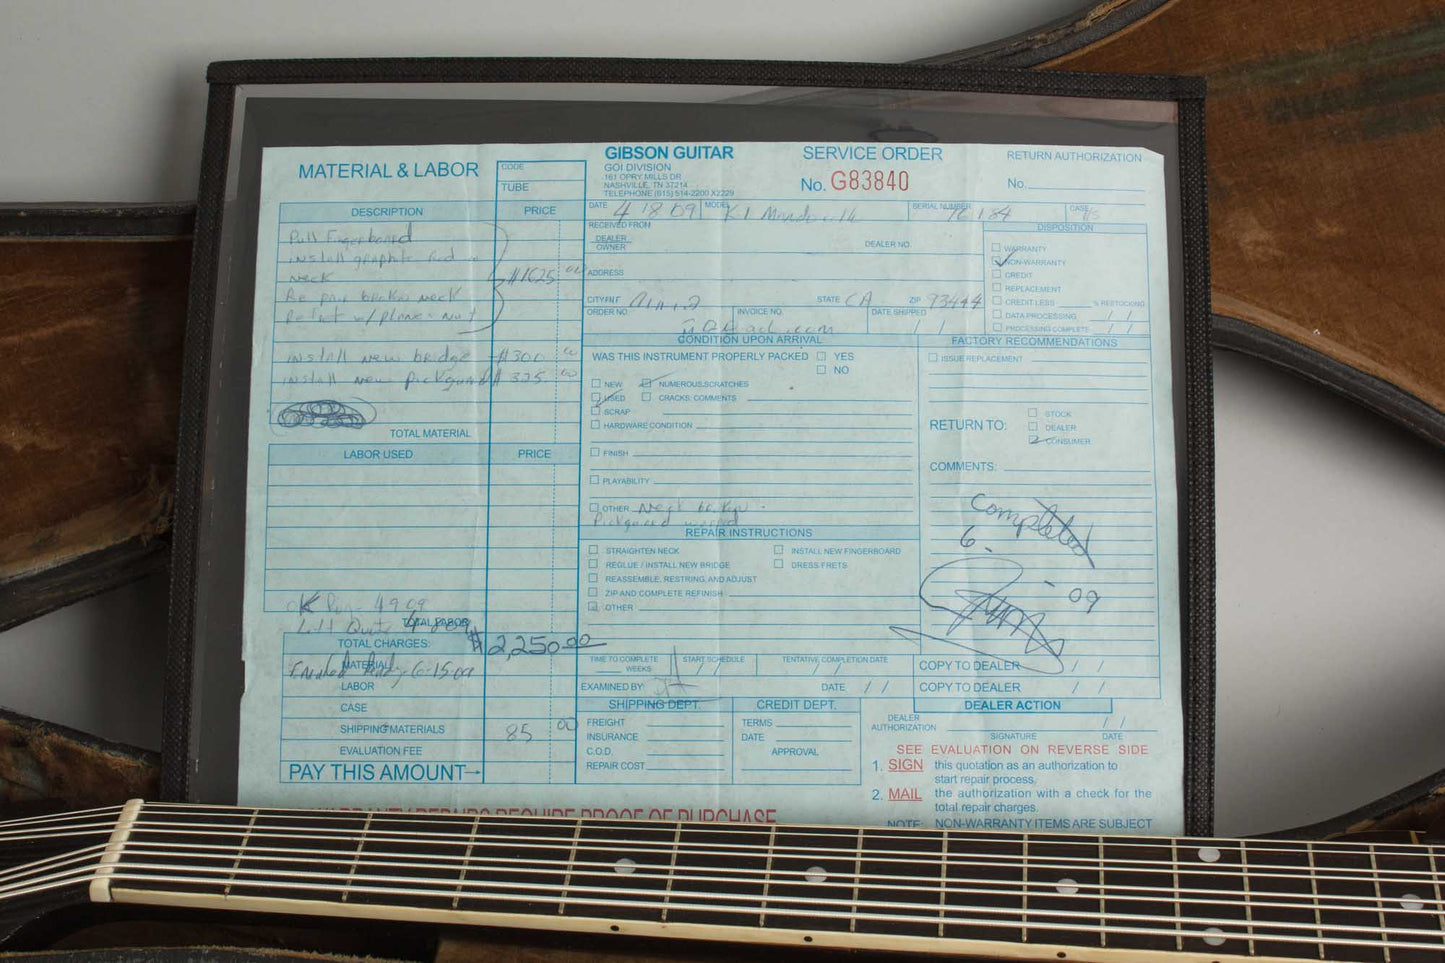 MATERIAL & LABOR
CODE
TUBE
DESCRIPTION
PRICE
Pull Fingerboard
install graphite Rod in
neck
$1625 00
Repair broken neck
Refret w/
install new bridge $300 00
install new pickguard $325 00
TOTAL MATERIAL
LABOR USED
PRICE
OK 4 9 09
TOTAL LABOR
TOTAL CHARGES: $2,250.00
MATERIAL
Finished Ready 6-15-09
LABOR
CASE
SHIPPING MATERIALS 85 00
EVALUATION FEE
PAY THIS AMOUNT→
GIBSON GUITAR
GOI DIVISION
161 OPRY MILLS DR
NASHVILLE, TN 37214
TELEPHONE (615) 514-2200 X2229
SERVICE ORDER
No. G83840
RETURN AUTHORIZATION
No.
DATE 4 18 09
MODEL K1 Mando
SERIAL NUMBER
CASE
RECEIVED FROM
DEALER
OWNER
DEALER NO.
ADDRESS
CITY
STATE CA
ZIP 93444
ORDER NO.
INVOICE NO.
DATE SHIPPED
/ /
DISPOSITION
WARRANTY
NON-WARRANTY
CREDIT
REPLACEMENT
CREDIT LESS % RESTOCKING
DATA PROCESSING / /
PROCESSING COMPLETE / /
CONDITION UPON ARRIVAL
WAS THIS INSTRUMENT PROPERLY PACKED YES
NO
NEW NUMEROUS SCRATCHES
USED CRACKS: COMMENTS
SCRAP
HARDWARE CONDITION
FINISH
PLAYABILITY
OTHER Neck broken
Pickguard warped
REPAIR INSTRUCTIONS
STRAIGHTEN NECK
INSTALL NEW FINGERBOARD
REGLUE / INSTALL NEW BRIDGE
DRESS FRETS
REASSEMBLE, RESTRING, AND ADJUST
ZIP AND COMPLETE REFINISH
OTHER
TIME TO COMPLETE
WEEKS
START SCHEDULE
/ /
TENTATIVE COMPLETION DATE
/ /
EXAMINED BY:
DATE / /
FACTORY RECOMMENDATIONS
ISSUE REPLACEMENT
RETURN TO:
STOCK
DEALER
CONSUMER
COMMENTS:
Completed
6.
-09
COPY TO DEALER / /
COPY TO DEALER / /
SHIPPING DEPT.
FREIGHT
INSURANCE
C.O.D.
REPAIR COST
CREDIT DEPT.
TERMS
DATE
APPROVAL
DEALER ACTION
DEALER
AUTHORIZATION
SIGNATURE
/ /
DATE
SEE EVALUATION ON REVERSE SIDE
1. SIGN this quotation as an authorization to
start repair process.
2. MAIL the authorization with a check for the
total repair charges.
NOTE: NON-WARRANTY ITEMS ARE SUBJECT
WARRANTY REPAIRS REQUIRE PROOF OF PURCHASE